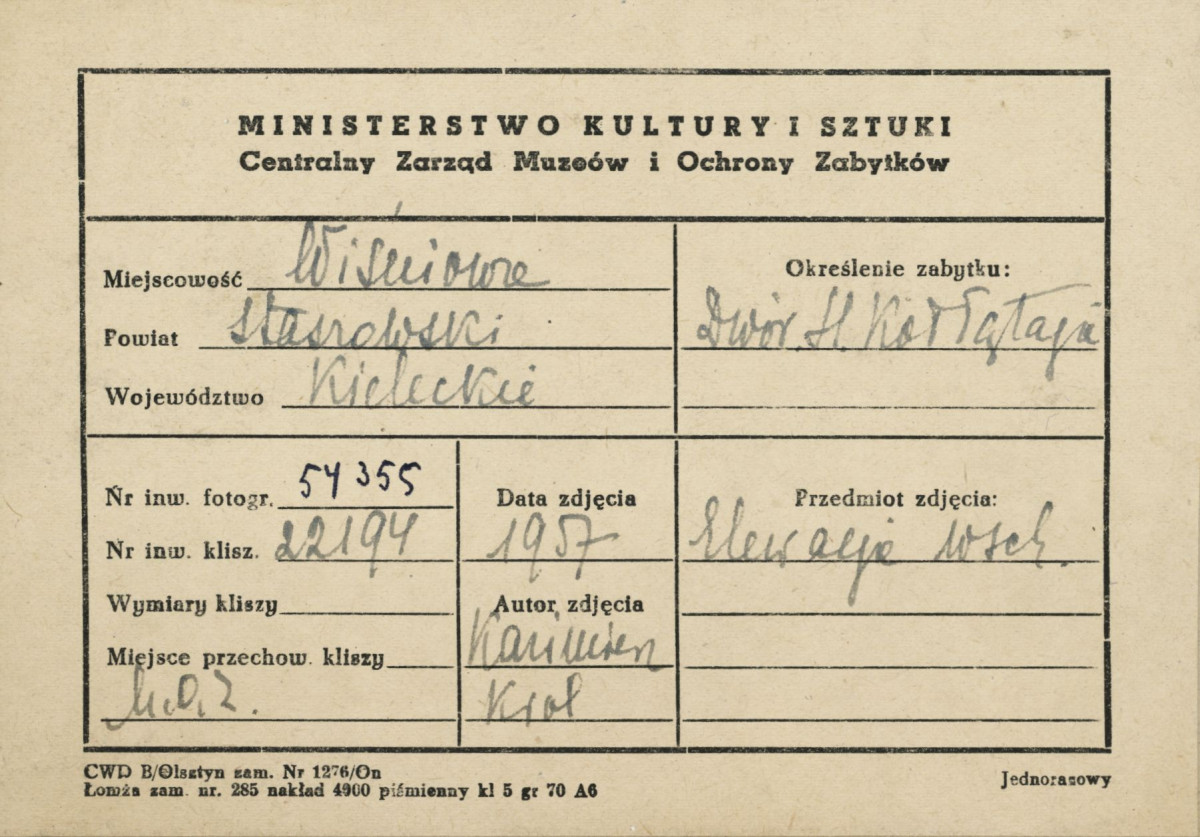 MINISTERSTWO KULTURY I SZTUKI
Centralny Zarząd Muzeów i Ochrony Zabytków
Miejscowość Wiśniowa
Powiat Staszowski
Województwo Kieleckie
Określenie zabytku:
Dwór H. Kołłątaja
Nr inw. fotogr. 54355
Nr inw. klisz. 22194
Wymiary kliszy
Miejsce przechow. kliszy
M.O.Z.
Data zdjęcia
1957
Autor zdjęcia
Kazimierz
Król
Przedmiot zdjęcia:
Elewacja wsch.
CWD B/Olsztyn zam. Nr 1276/On
Łomża zam. nr. 285 nakład 4900 piśmienny kl 5 gr 70 A6
Jednorazowy